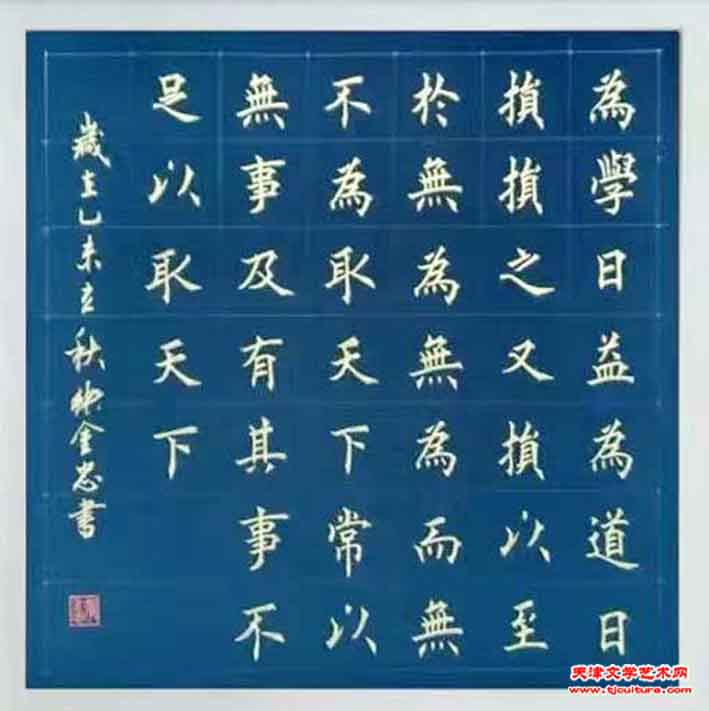 為學日益為道日
損損之又損以至
於無為無為而無
不為取天下常以
無事及有其事不
足以取天下
歲在乙未立秋 金忠書
天津文学艺术网
www.tjculture.com